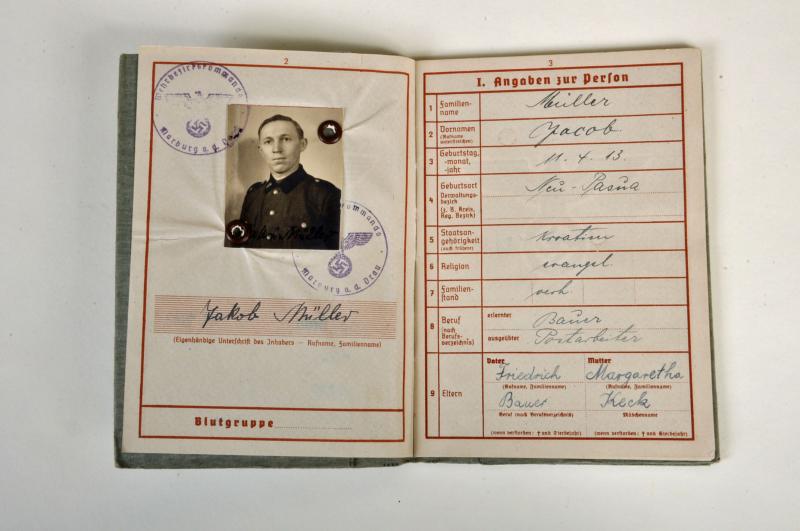 2
Wehrbezirkskommando
Marburg a. d. Drau
Marburg a. d. Drau
Jakob Müller
(Eigenhändige Unterschrift des Inhabers — Rufname, Familienname)
Blutgruppe
3
I. Angaben zur Person
1 Familien-
name
Müller
2 Vornamen
(Rufname
unterstreichen)
Jacob
3 Geburtstag,
-monat,
-jahr
11. 4. 13.
4 Geburtsort
Verwaltungs-
bezirk
(z. B. Kreis,
Reg. Bezirk)
Neu-Pasua
5 Staatsan-
gehörigkeit
(auch frühere)
Kroatien
6 Religion
evangel.
7 Familien-
stand
verh.
8 Beruf
(nach
Berufs-
verzeichnis)
erlernter
Bauer
ausgeübter
Postarbeiter
9 Eltern
Vater
Friedrich
(Rufname, Familienname)
Bauer
Beruf (nach Berufsverzeichnis)
(wenn verstorben: † und Sterbejahr)
Mutter
Margaretha
(Rufname, Familienname)
Keck
Mädchenname
(wenn verstorben: † und Sterbejahr)